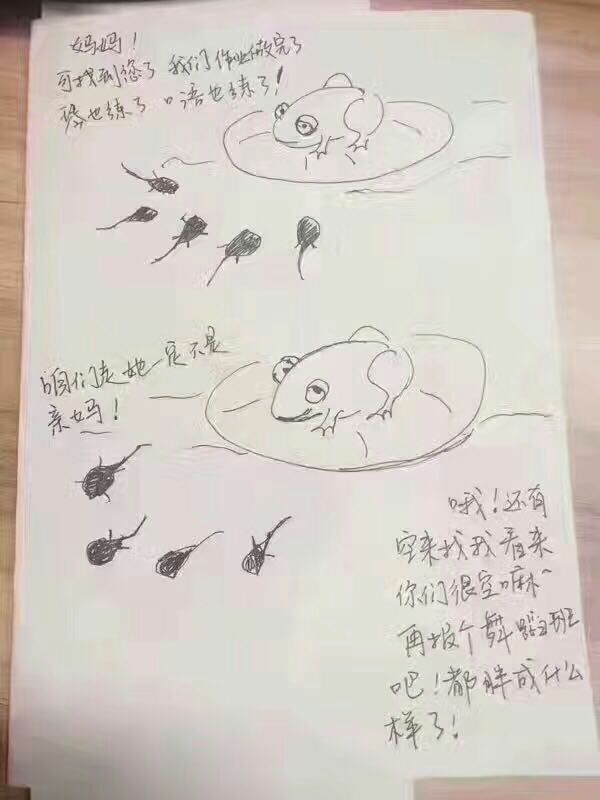 妈妈！
可找到您了 我们作业做完了
琴也练了 口语也练了！
咱们走她一定不是
亲妈！
哦！还有
空来找我看来
你们很空嘛~
再报个舞蹈班
吧！都胖成什么
样了！